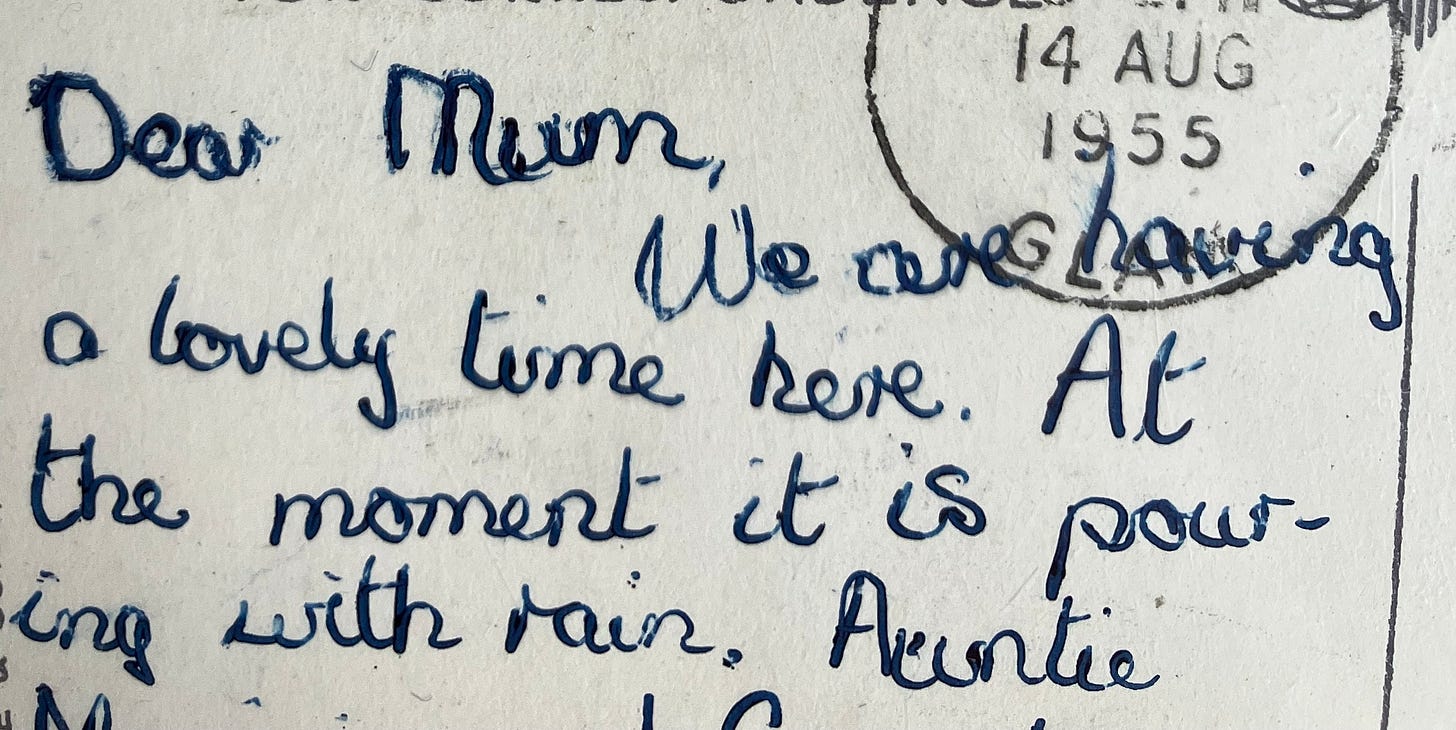 14 AUG
1955
Dear Mum,
We are having
a lovely time here. At
the moment it is pour-
ing with rain. Auntie